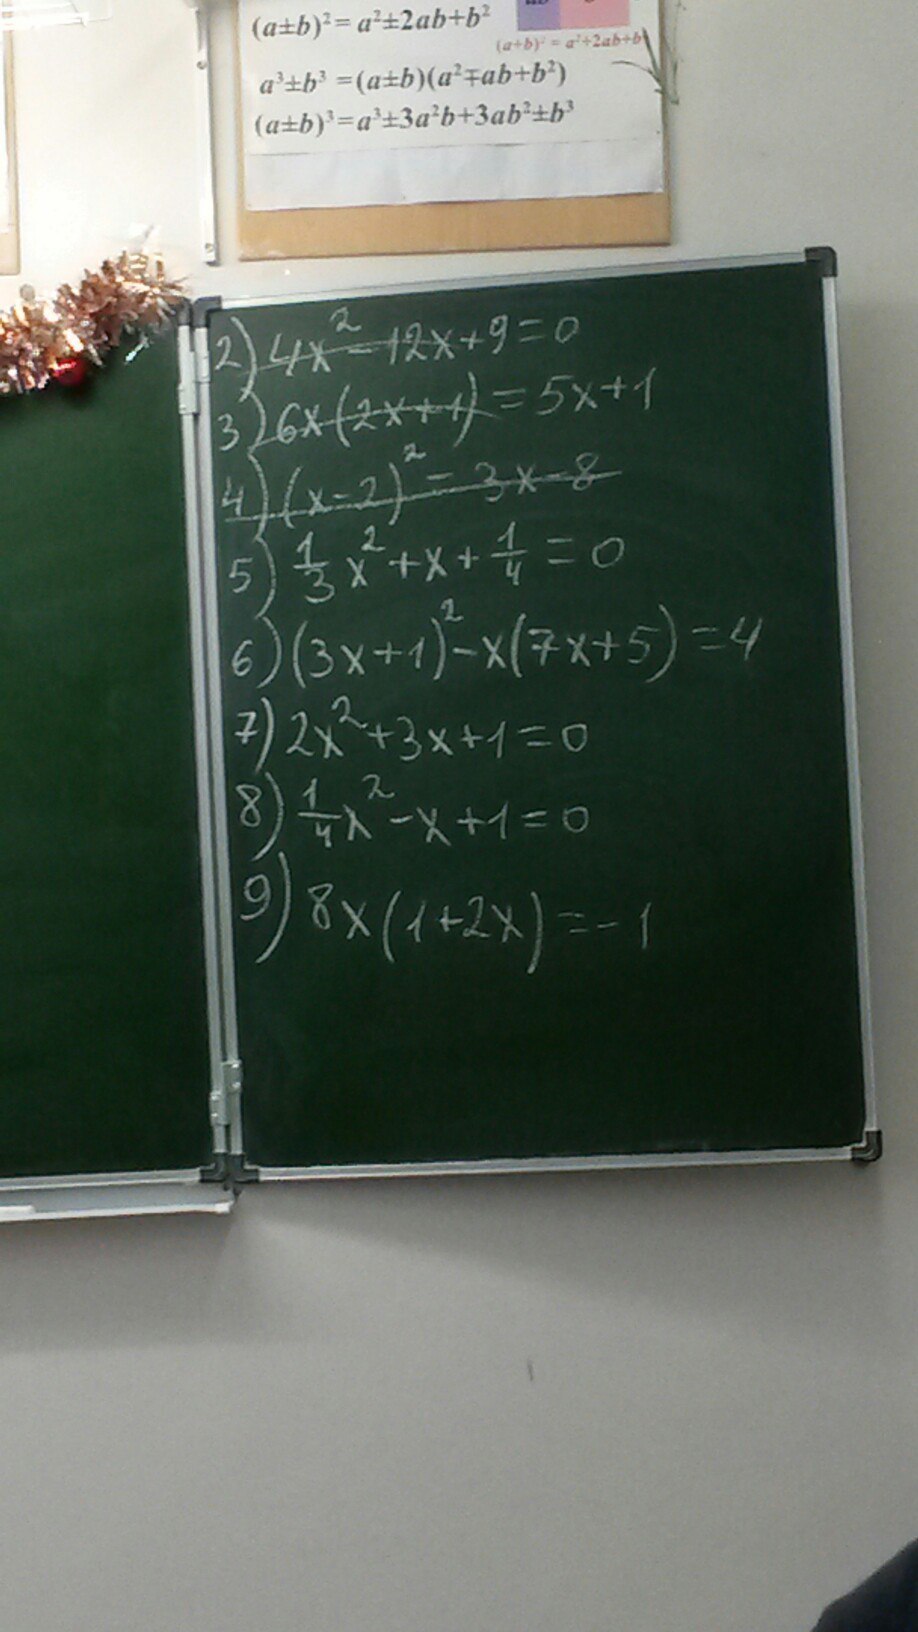 (a±b)²=a²±2ab+b²
(a+b)² = a²+2ab+b²
a³±b³ =(a±b)(a²∓ab+b²)
(a±b)³=a³±3a²b+3ab²±b³
2) 4x²-12x+9=0
3) 6x(2x+1)=5x+1
4) (x-2)²=3x-8
5) 1/3 x²+x+1/4=0
6) (3x+1)²-x(7x+5)=4
7) 2x²+3x+1=0
8) 1/4 x²-x+1=0
9) 8x(1+2x)=-1